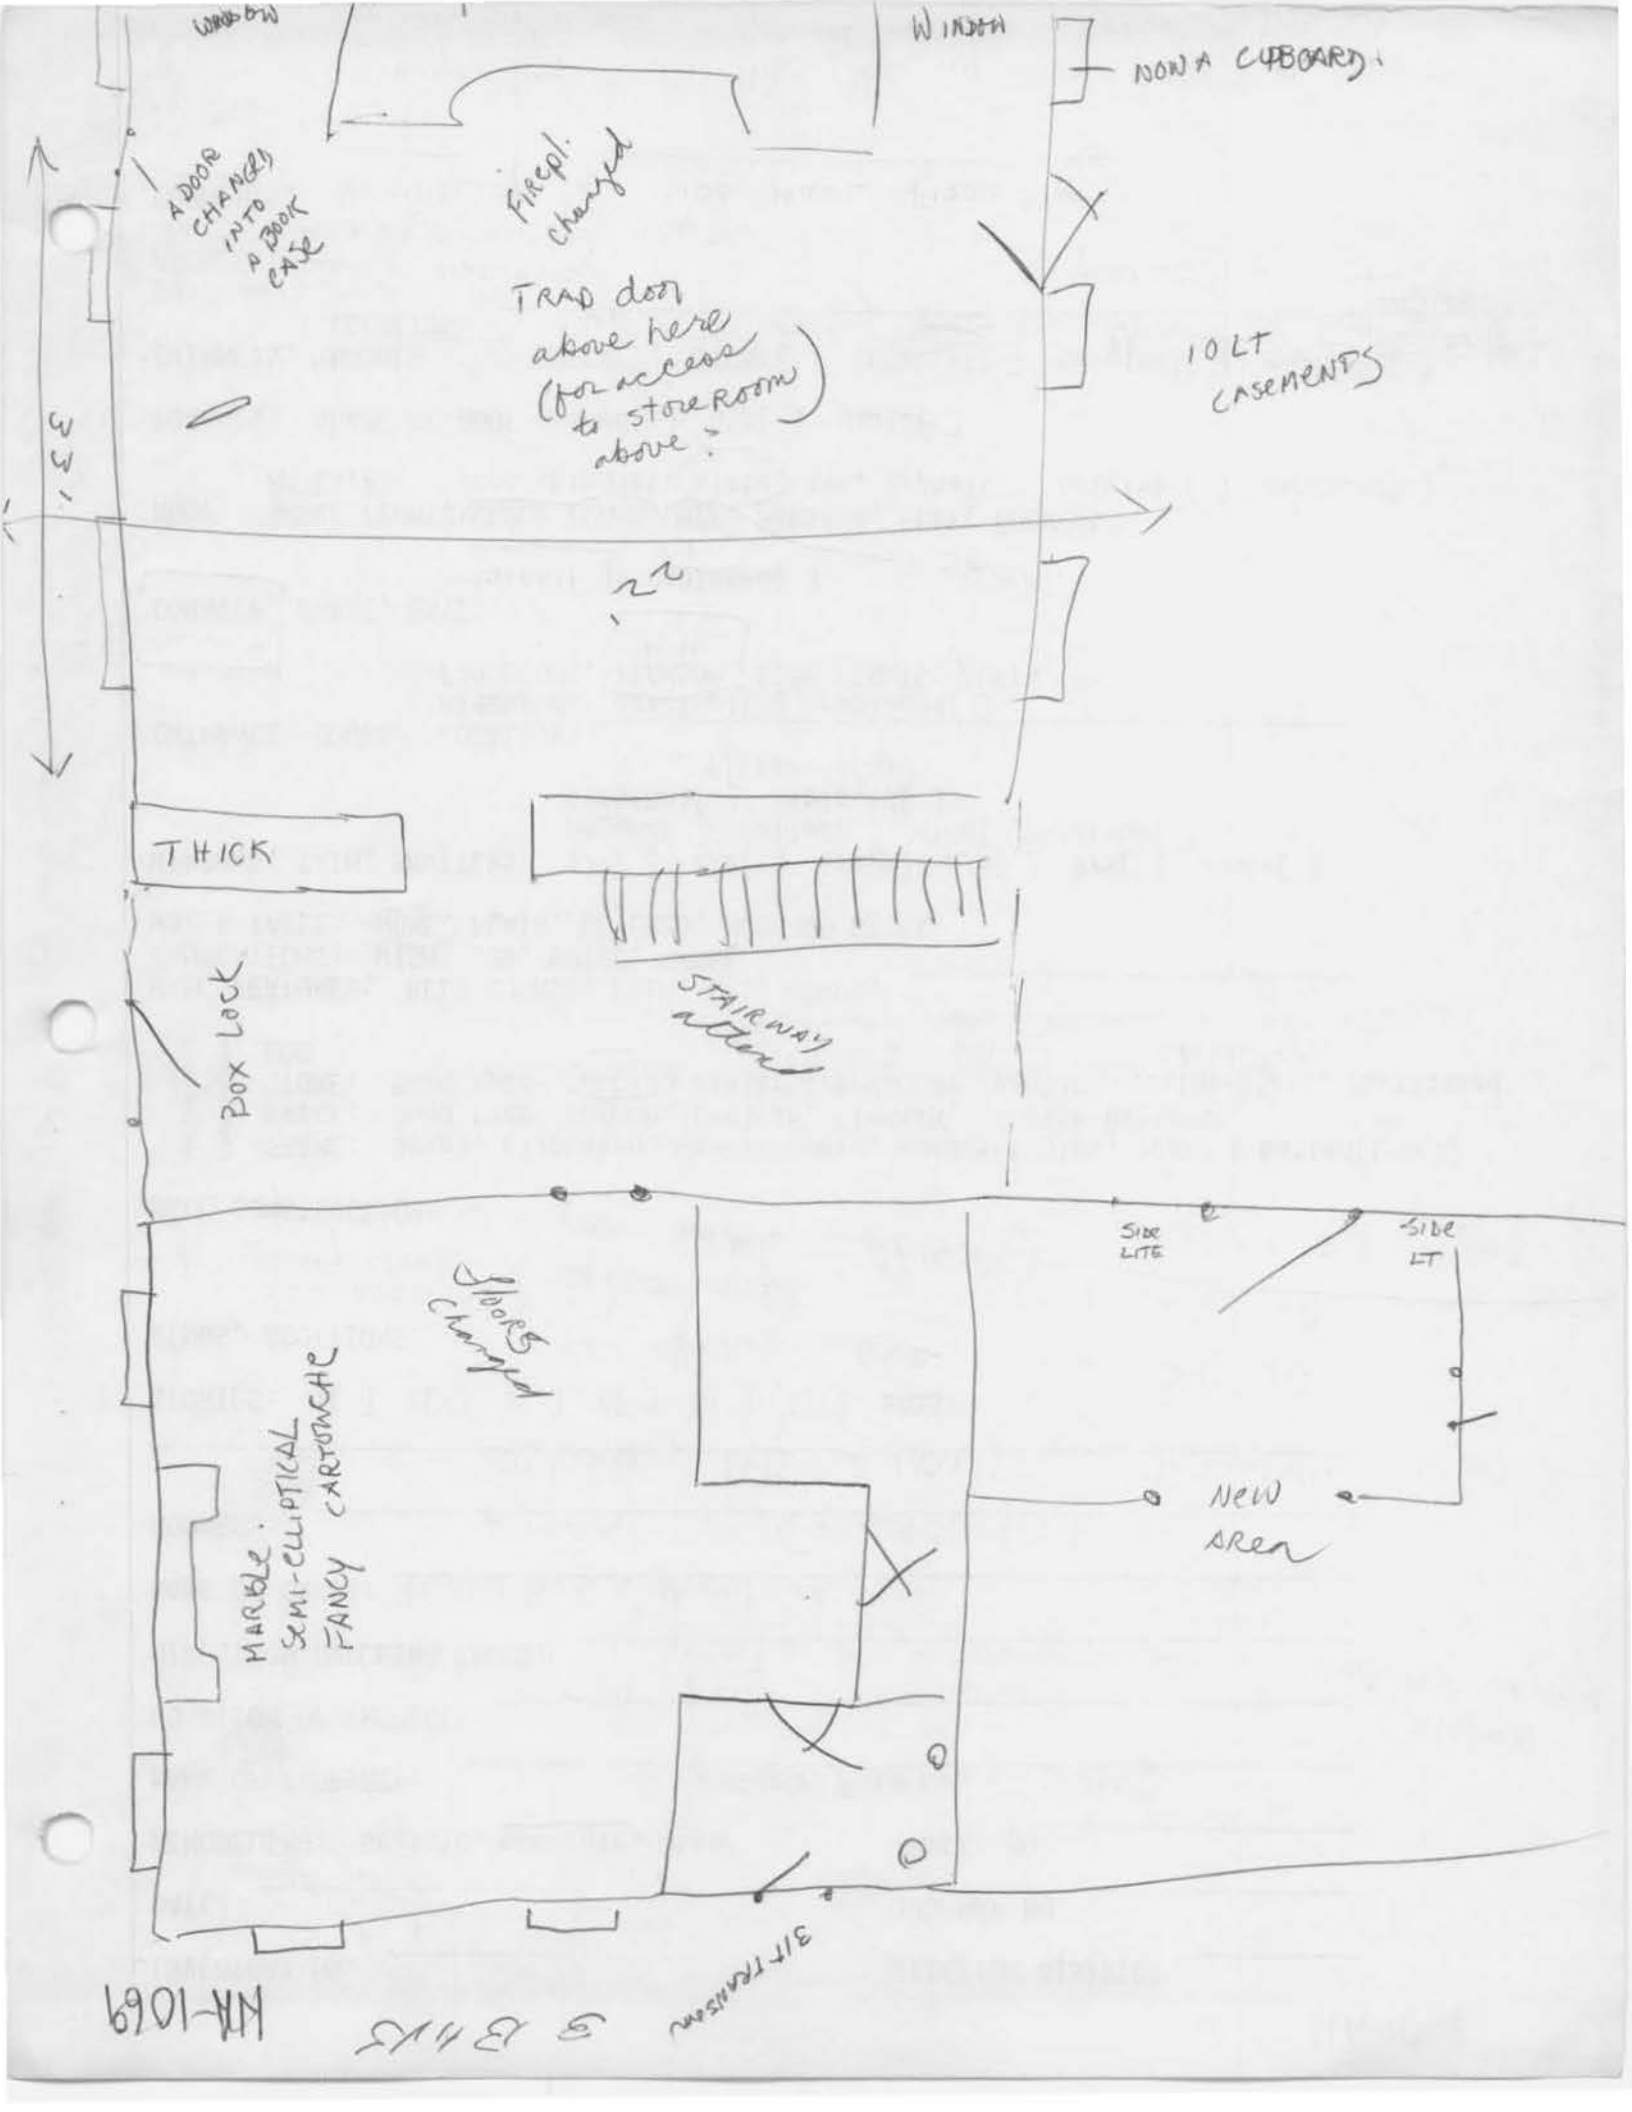 WINDOW
WINDOW
NOW A CUPBOARD.
A DOOR
CHANGED
INTO
A BOOK
CASE
Firepl.
changed
TRAP door
above here
(for access
to storeroom
above.)
10 LT
CASEMENTS
33'
22'
THICK
BOX LOCK
STAIRWAY
altered
SIDE
LITE
SIDE
LT
floors
changed
MARBLE.
SEMI-ELLIPTICAL
FANCY CARTOUCHE
NEW
AREA
3 LT TRANSOM
KA-1069